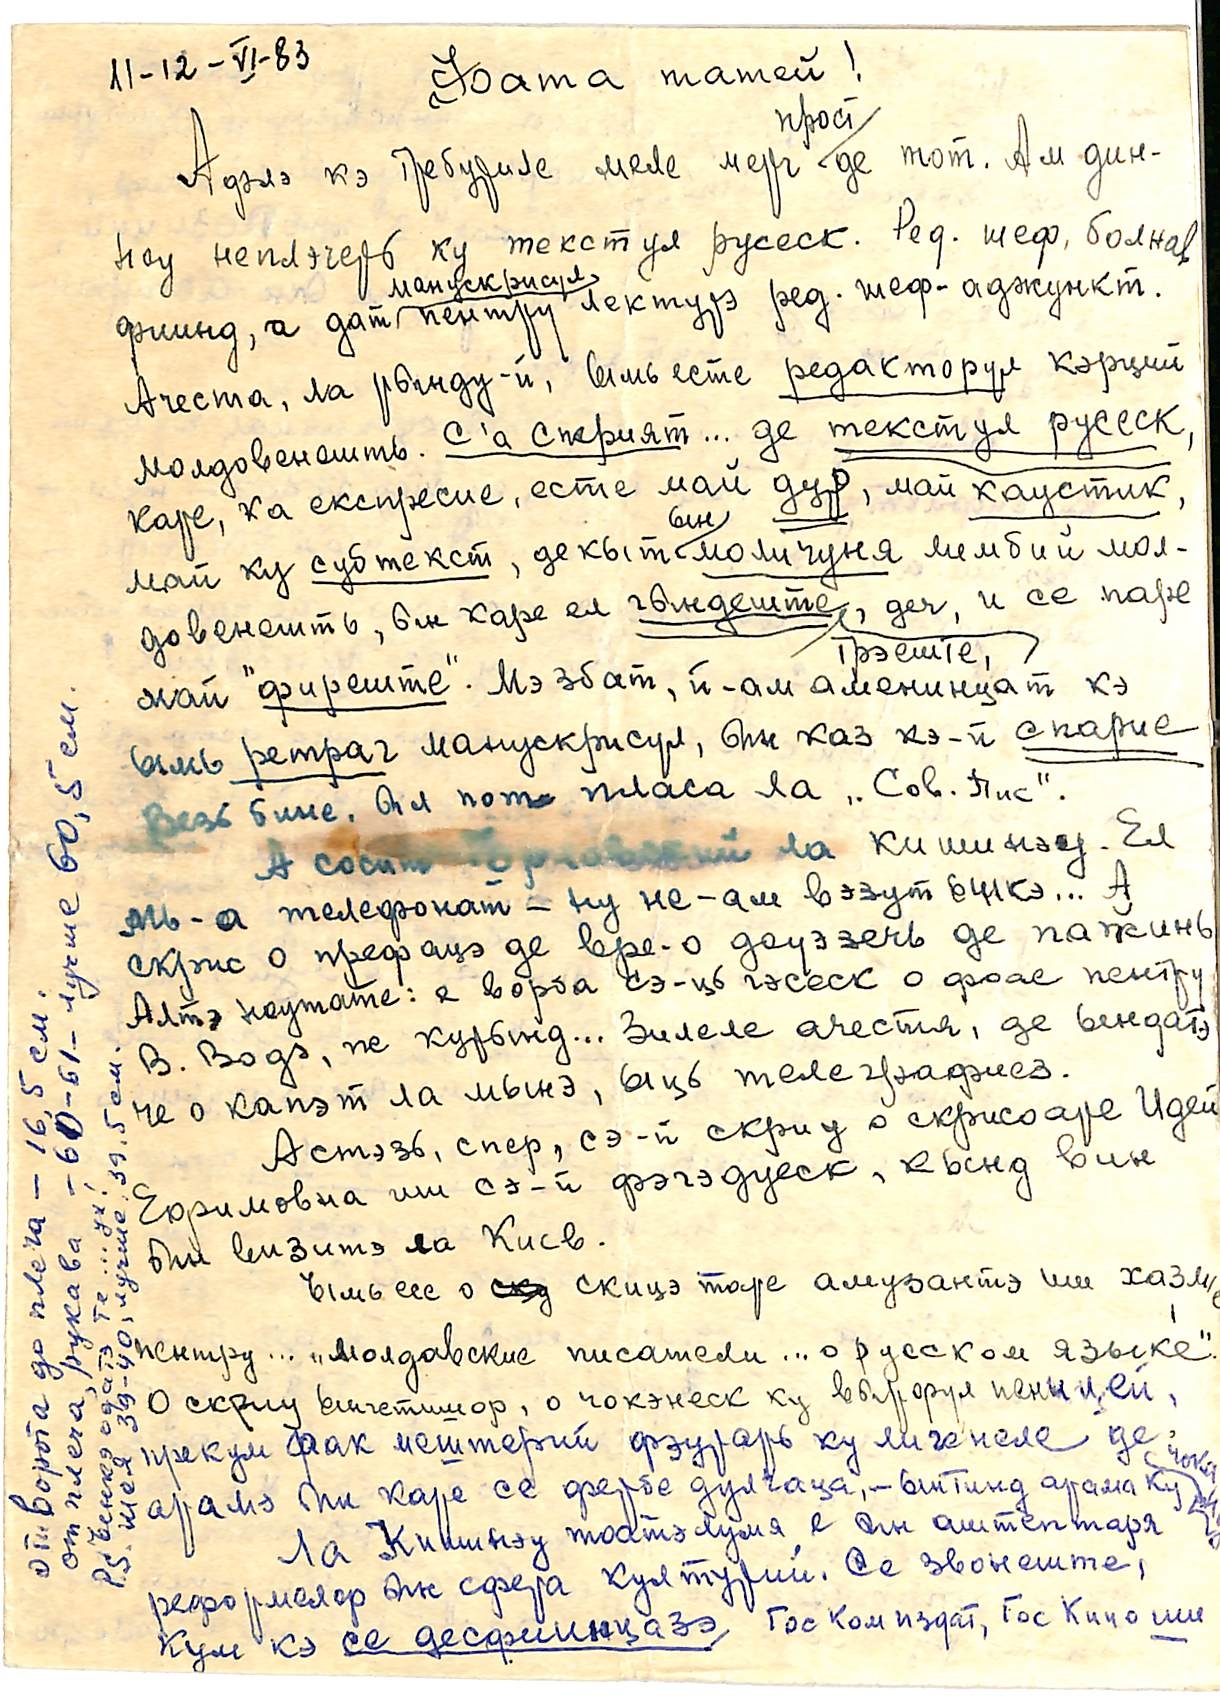 11-12-VI-83
Фата татей!
прост
Афлэ кэ требуриле меле мерг де тот. Ам дин-
ноу неплэчерь ку текстул русеск. Ред. шеф, болнав
манускрисул
фиинд, а дат пентру лектурэ ред. шеф-аджункт.
Ачеста, ла рындул-й, ымь есте редакторул кэрций
молдовенешть. С'а сприят... де текстул русеск,
каре, ка експресие, есте май дур, май каустик,
ын
май ку субтекст, декыт моличуня лимбий мол-
довенешть, ын каре ел гындеште, деч, и се паре
трэеште,
май "фиреште". Мэ збат, й-ам аменинцат кэ
ымь ретраг манускрисул, ын каз кэ-й спарие
Везь бине, ыл пот пласа ла „Сов. Пис".
А сосит ла Кишинэу. Ел
мь-а телефонат – ну не-ам вэзут ынкэ... А
скрис о префацэ де вре-о доуэзечь де пажинь
Алтэ ноутате: е ворба сэ-ць гэсеск о фоае пентру
В. Водэ, пе курынд... Зилеле ачестя, де ындатэ
че о капэт ла мынэ, ыць телеграфиез.
Астэзь, спер, сэ-й скриу о скрисоаре Идей
Ефимовна ши сэ-й фэгэдуеск, кынд вин
ын визитэ ла Киев.
Ымь есе о скицэ таре амузантэ ши хазлие
пентру... „молдавские писатели... о русском языке".
О скриу ынчетишор, о чокэнеск ку вырфул пеницей,
прекум фак мештерий фэурарь ку лигенеле де
арамэ ын каре се фербе дулчаца, – ынтинд арама ку
Ла Кишинэу тоатэ лумя е ын аштептаря
реформелор ын сфера културий. Се звонеште,
кум кэ се десфиинцазэ ГосКомиздат, ГосКино ши
от ворота до плеча – 16,5 см.
от плеча, рукава – 60-61 – лучше 60,5 см.
P.S. шея 39-40, лучше 39,5 см.